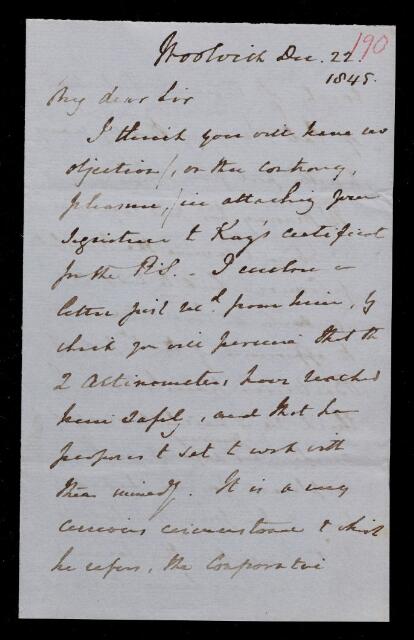 190
Woolwich Dec. 22.
1845.
My dear Sir
I think you will have no
objection /, or the contrary,
pleasure, / in attaching your
signature to Kay's certificat
for the R.S. - I enclose a
letter just recd. from him, by
which you will perceive that the
2 Actinometers have reached
him safely, and that he
proposes to set to work with
them immedy. It is a very
curious circumstance to which
he refers, the Comparative